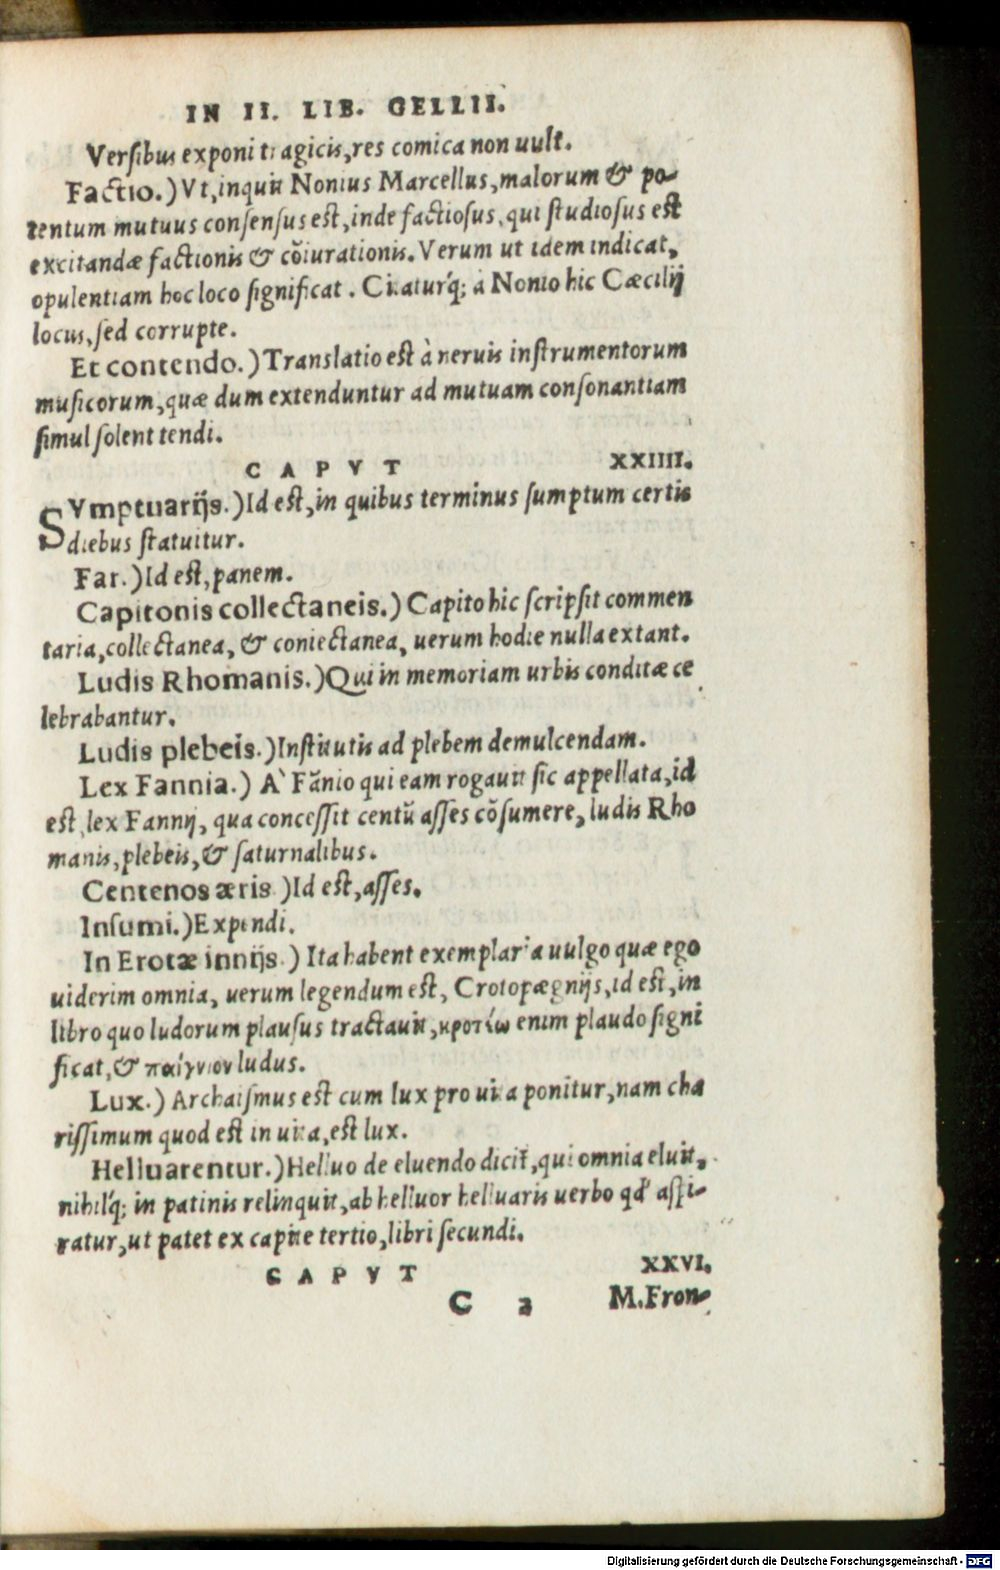 IN II. LIB. GELLII.
Versibus exponi tragicis, res comica non uult.
Factio.) Vt, inquit Nonius Marcellus, malorum & po-
tentum mutuus consensus est, inde factiosus, qui studiosus est
excitandæ factionis & cõiurationis. Verum ut idem indicat,
opulentiam hoc loco significat. Citaturq́; à Nonio hic Cæcilij
locus, sed corrupte.
Et contendo.) Translatio est à neruis instrumentorum
musicorum, quæ dum extenduntur ad mutuam consonantiam
simul solent tendi.
CAPVT XXIIII.
SVmptuarijs.) Id est, in quibus terminus sumptum certis
diebus statuitur.
Far.) Id est, panem.
Capitonis collectaneis.) Capito hic scripsit commen
taria, collectanea, & coniectanea, uerum hodie nulla extant.
Ludis Rhomanis.) Qui in memoriam urbis conditæ ce
lebrabantur.
Ludis plebeis.) Institutis ad plebem demulcendam.
Lex Fannia.) A` Fãnio qui eam rogauit sic appellata, id
est, lex Fannij, qua concessit centũ asses cõsumere, ludis Rho
manis, plebeis, & saturnalibus.
Centenos æris.) Id est, asses.
Insumi.) Expendi.
In Erotæ innijs.) Ita habent exemplaria uulgo quæ ego
uiderim omnia, uerum legendum est, Crotopægnijs, id est, in
libro quo ludorum plausus tractauit, κροτέω enim plaudo signi
ficat, & παίγνιον ludus.
Lux.) Archaismus est cum lux pro uita ponitur, nam cha
rissimum quod est in uita, est lux.
Helluarentur.) Helluo de eluendo dicit̃, qui omnia eluit,
nihilq́; in patinis relinquit, ab helluor helluaris uerbo qđ aspi-
ratur, ut patet ex capite tertio, libri secundi.
CAPVT XXVI.
C 2 M. Fron-
Digitalisierung gefördert durch die Deutsche Forschungsgemeinschaft - DFG